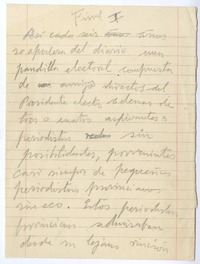 Final I
Así cada seis años
se apodera del diario una
pandilla electoral compuesta
de amigos directos del
Presidente electo y de mas de
tres o cuatro aspirantes a
periodistas sin
posibilidades, provenientes
casi siempre de pequeños
periodistas provincianos
sin eco. Estos periodistas
provincianos admiraban
desde su lejano rincón